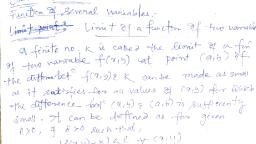 Function of several variables.
Limit of a function of two variable
a finite no. K is called the limit of a fn
of two variable f(x,y) at point (a,b) if
the diffrn bet^n f(x,y) & K can be made as small
as it satisfies for all values of (x,y) for which
the difference bet^n (x,y) & (a,b) is sufficiently
small. It can be defined as for given
such that,